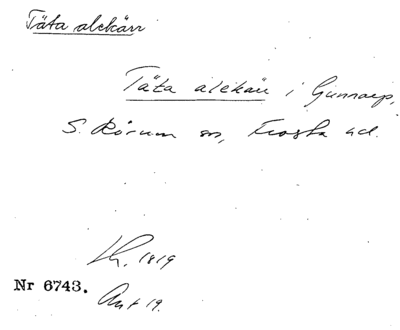 Täta alekärr
Täta alekärr i Gunnarp,
S. Rörum sn, Frosta hd.
Lh. 1819
Nr 6743.
Ant 19.